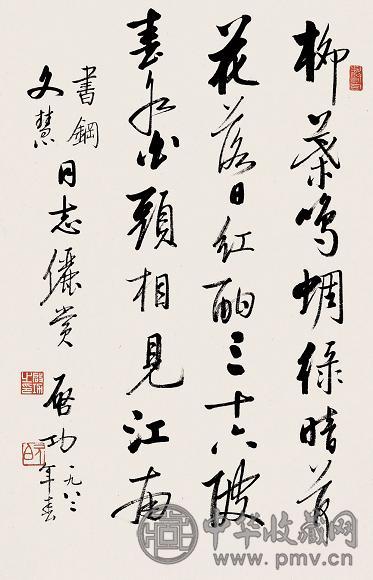 柳葉鳴蜩綠暗荷
花落日紅酣三十六陂
春水白頭相見江南
書鋼
文慧
同志儷賞
启功
一九八二
年春
中华收藏网
www.pmv.cn